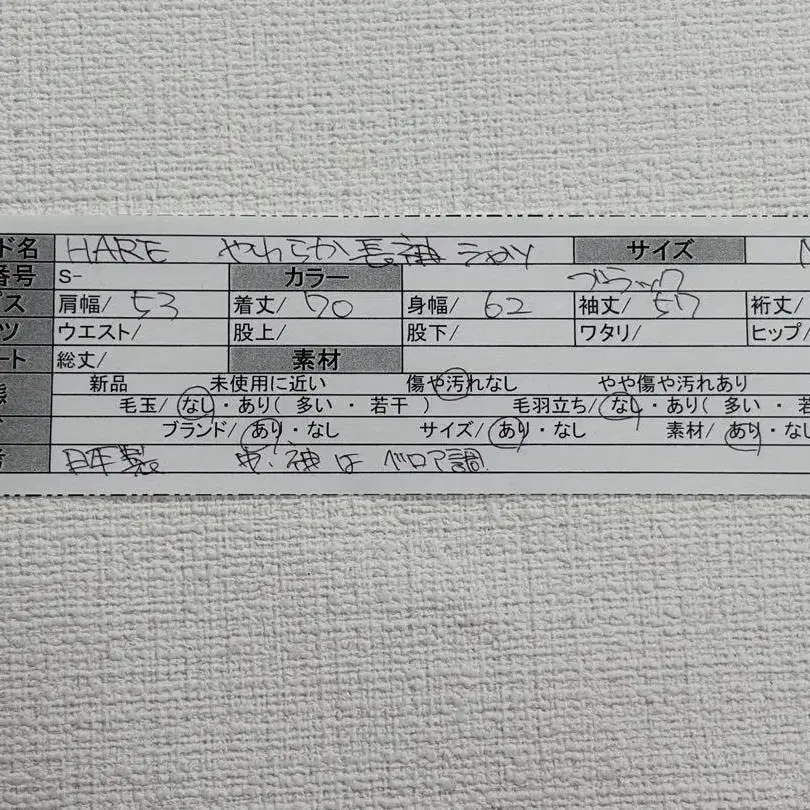 ド名 HARE やわらか長袖シャツ サイズ M
番号 S- カラー ブラック
肩幅/ 53 着丈/ 70 身幅/ 62 袖丈/ 57 裄丈/
ウエスト/ 股上/ 股下/ ワタリ/ ヒップ/
ート 総丈/ 素材
新品 未使用に近い 傷や汚れなし やや傷や汚れあり
毛玉/ なし・あり( 多い ・ 若干 ) 毛羽立ち/ なし・あり( 多い ・ 若
ブランド/ あり・なし サイズ/ あり・なし 素材/ あり・なし
日本製 袖は ベロア調